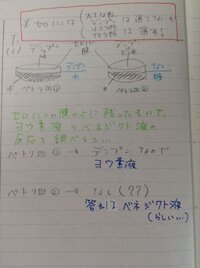 ※ セロハンは 大きな粒 デンプン は通さないが
小さな粒 ブドウ糖 は通す!
7.
(1) デンプン セロハン膜 なし
デンプン 糖
水 水
水 ペトリ皿① ペトリ皿②
セロハンの膜の上に残ったもので、
ヨウ素液とベネジクト液の
反応を調べると…
ペトリ皿① → デンプンなので
ヨウ素液
ペトリ皿② → なし(??)
答えはベネジクト液
(らしい…)